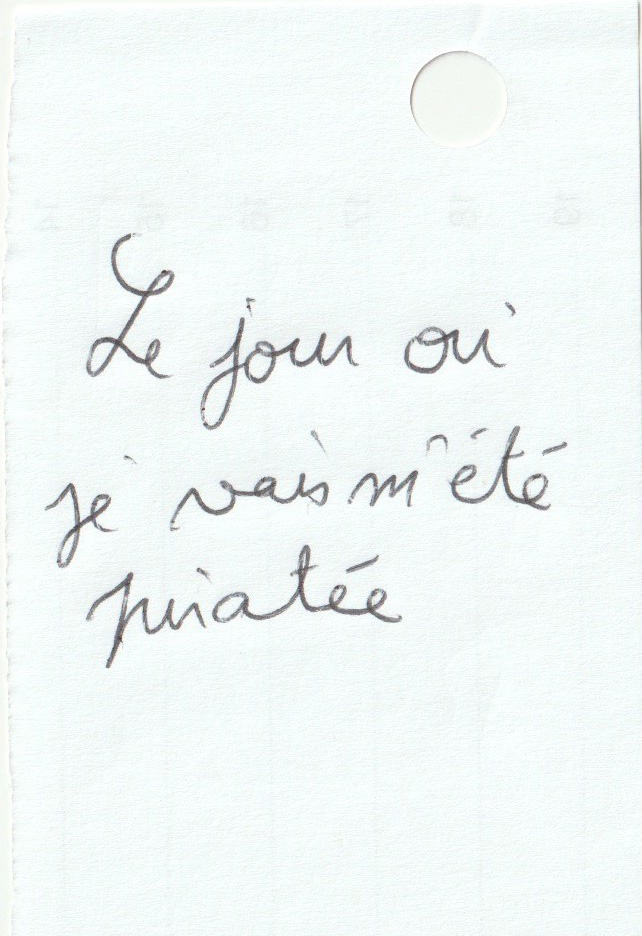 Le jour où
je vais m'été
piratée